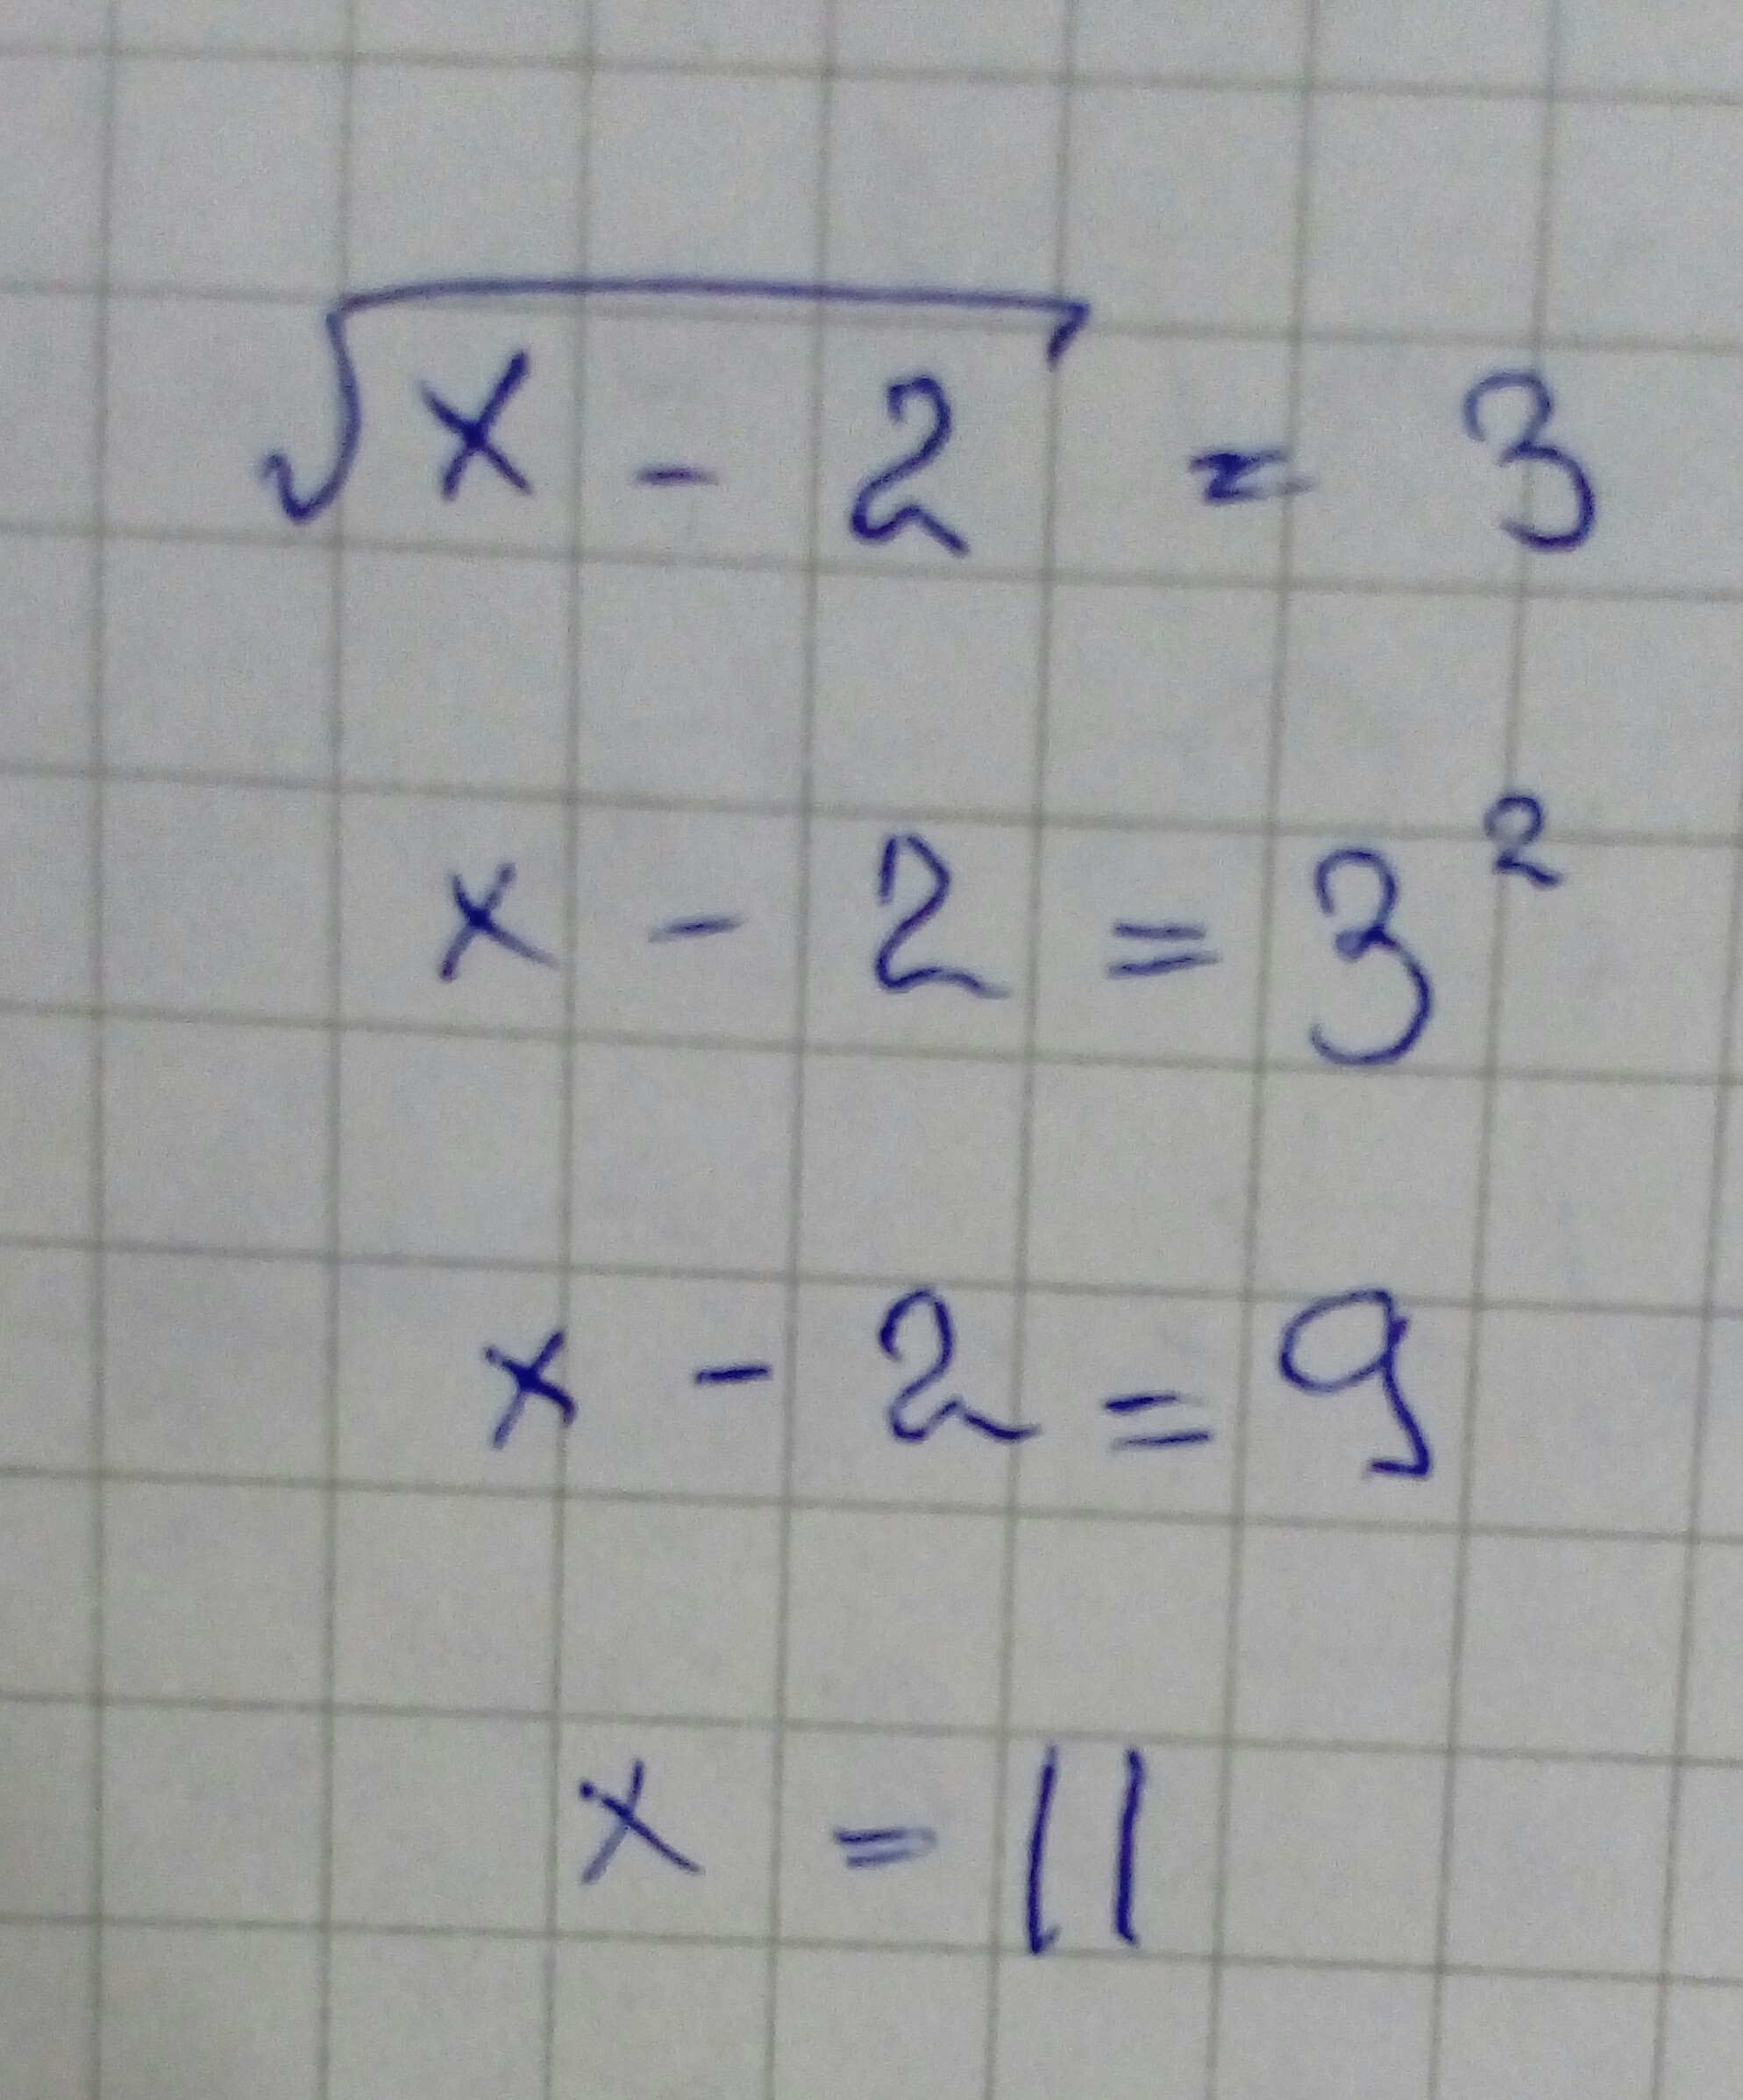 √x - 2 = 3
x - 2 = 3²
x - 2 = 9
x = 11